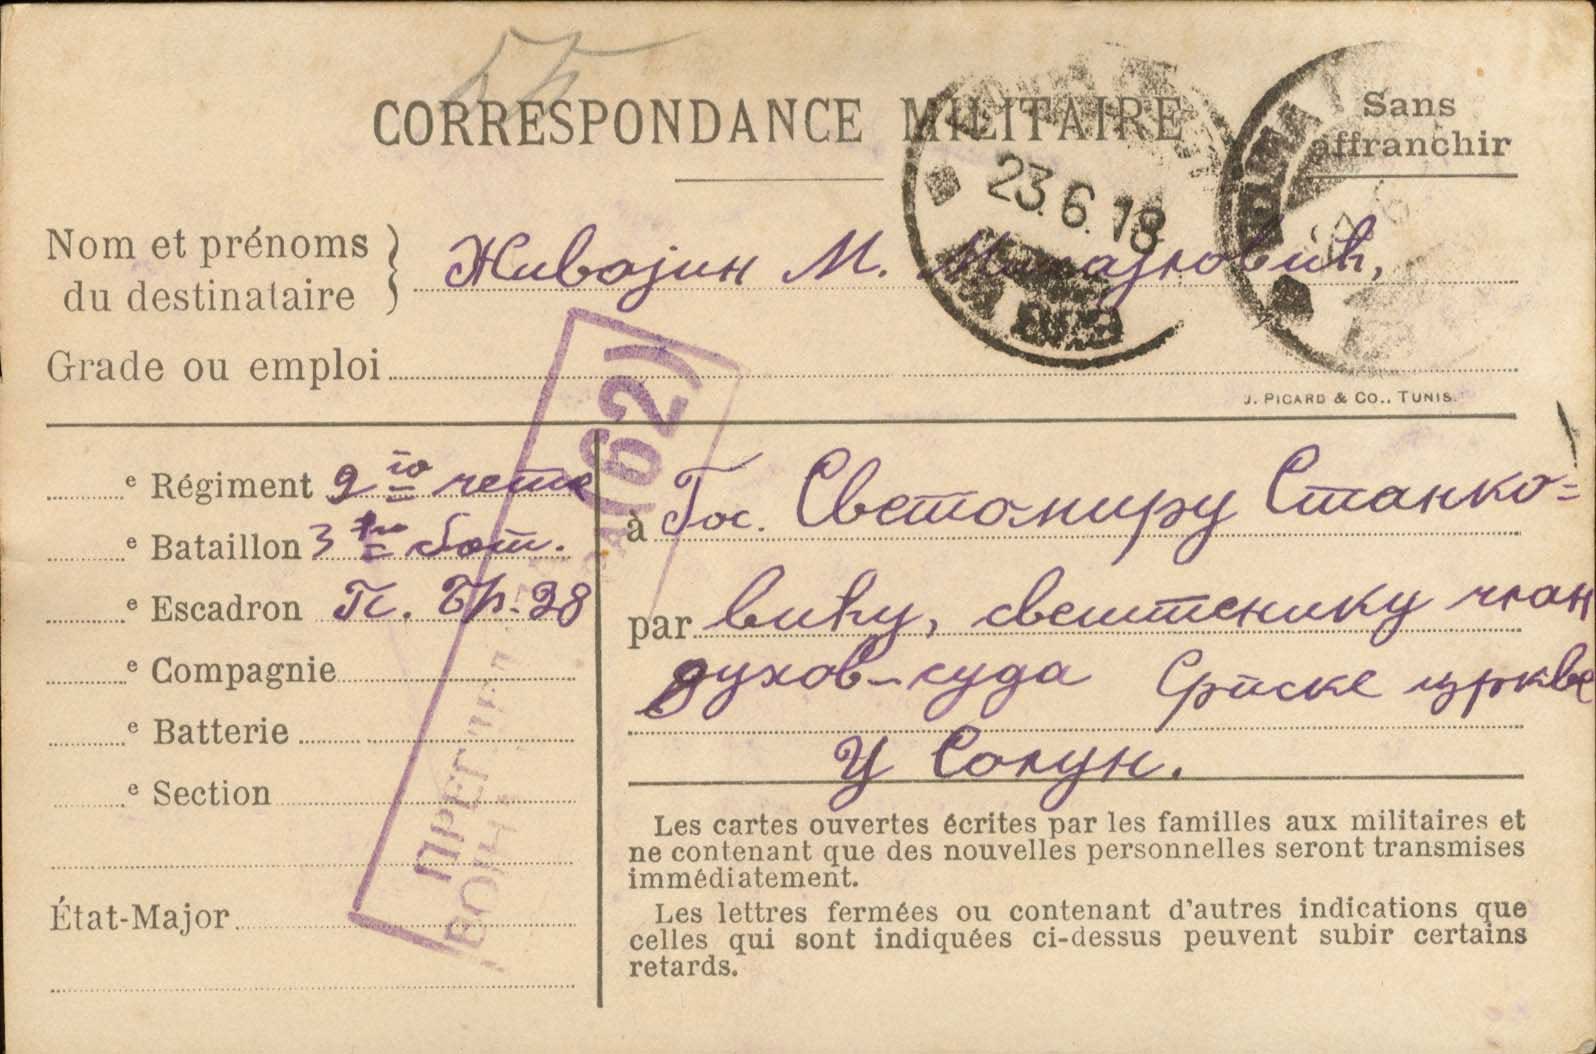 CORRESPONDANCE MILITAIRE
Sans
affranchir
23.6.18
Nom et prénoms
du destinataire
Живојин М.
Grade ou emploi
J. PICARD & CO., TUNIS.
e Régiment 2 чете
e Bataillon 3 бат.
e Escadron
e Compagnie
e Batterie
e Section
État-Major
(62)
à Гос. Светомиру Станко=
par вићу, свештенику члан
духов-суда Српске цркве
У Солун.
Les cartes ouvertes écrites par les familles aux militaires et
ne contenant que des nouvelles personnelles seront transmises
immédiatement.
Les lettres fermées ou contenant d'autres indications que
celles qui sont indiquées ci-dessus peuvent subir certains
retards.